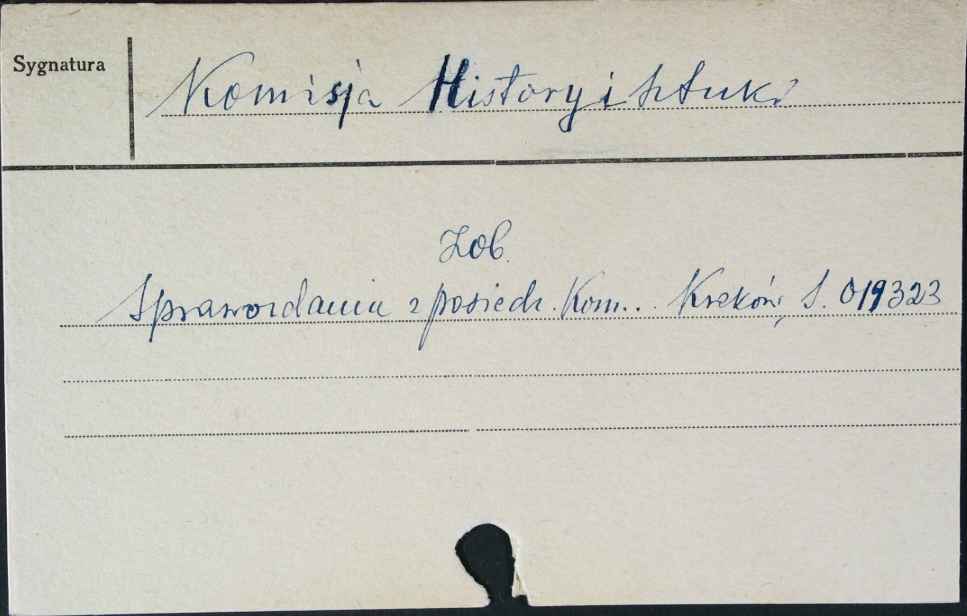 Sygnatura
Komisja Historyi Sztuki
Zob.
Sprawozdania z posiedz. Kom... Kraków, S. 019323